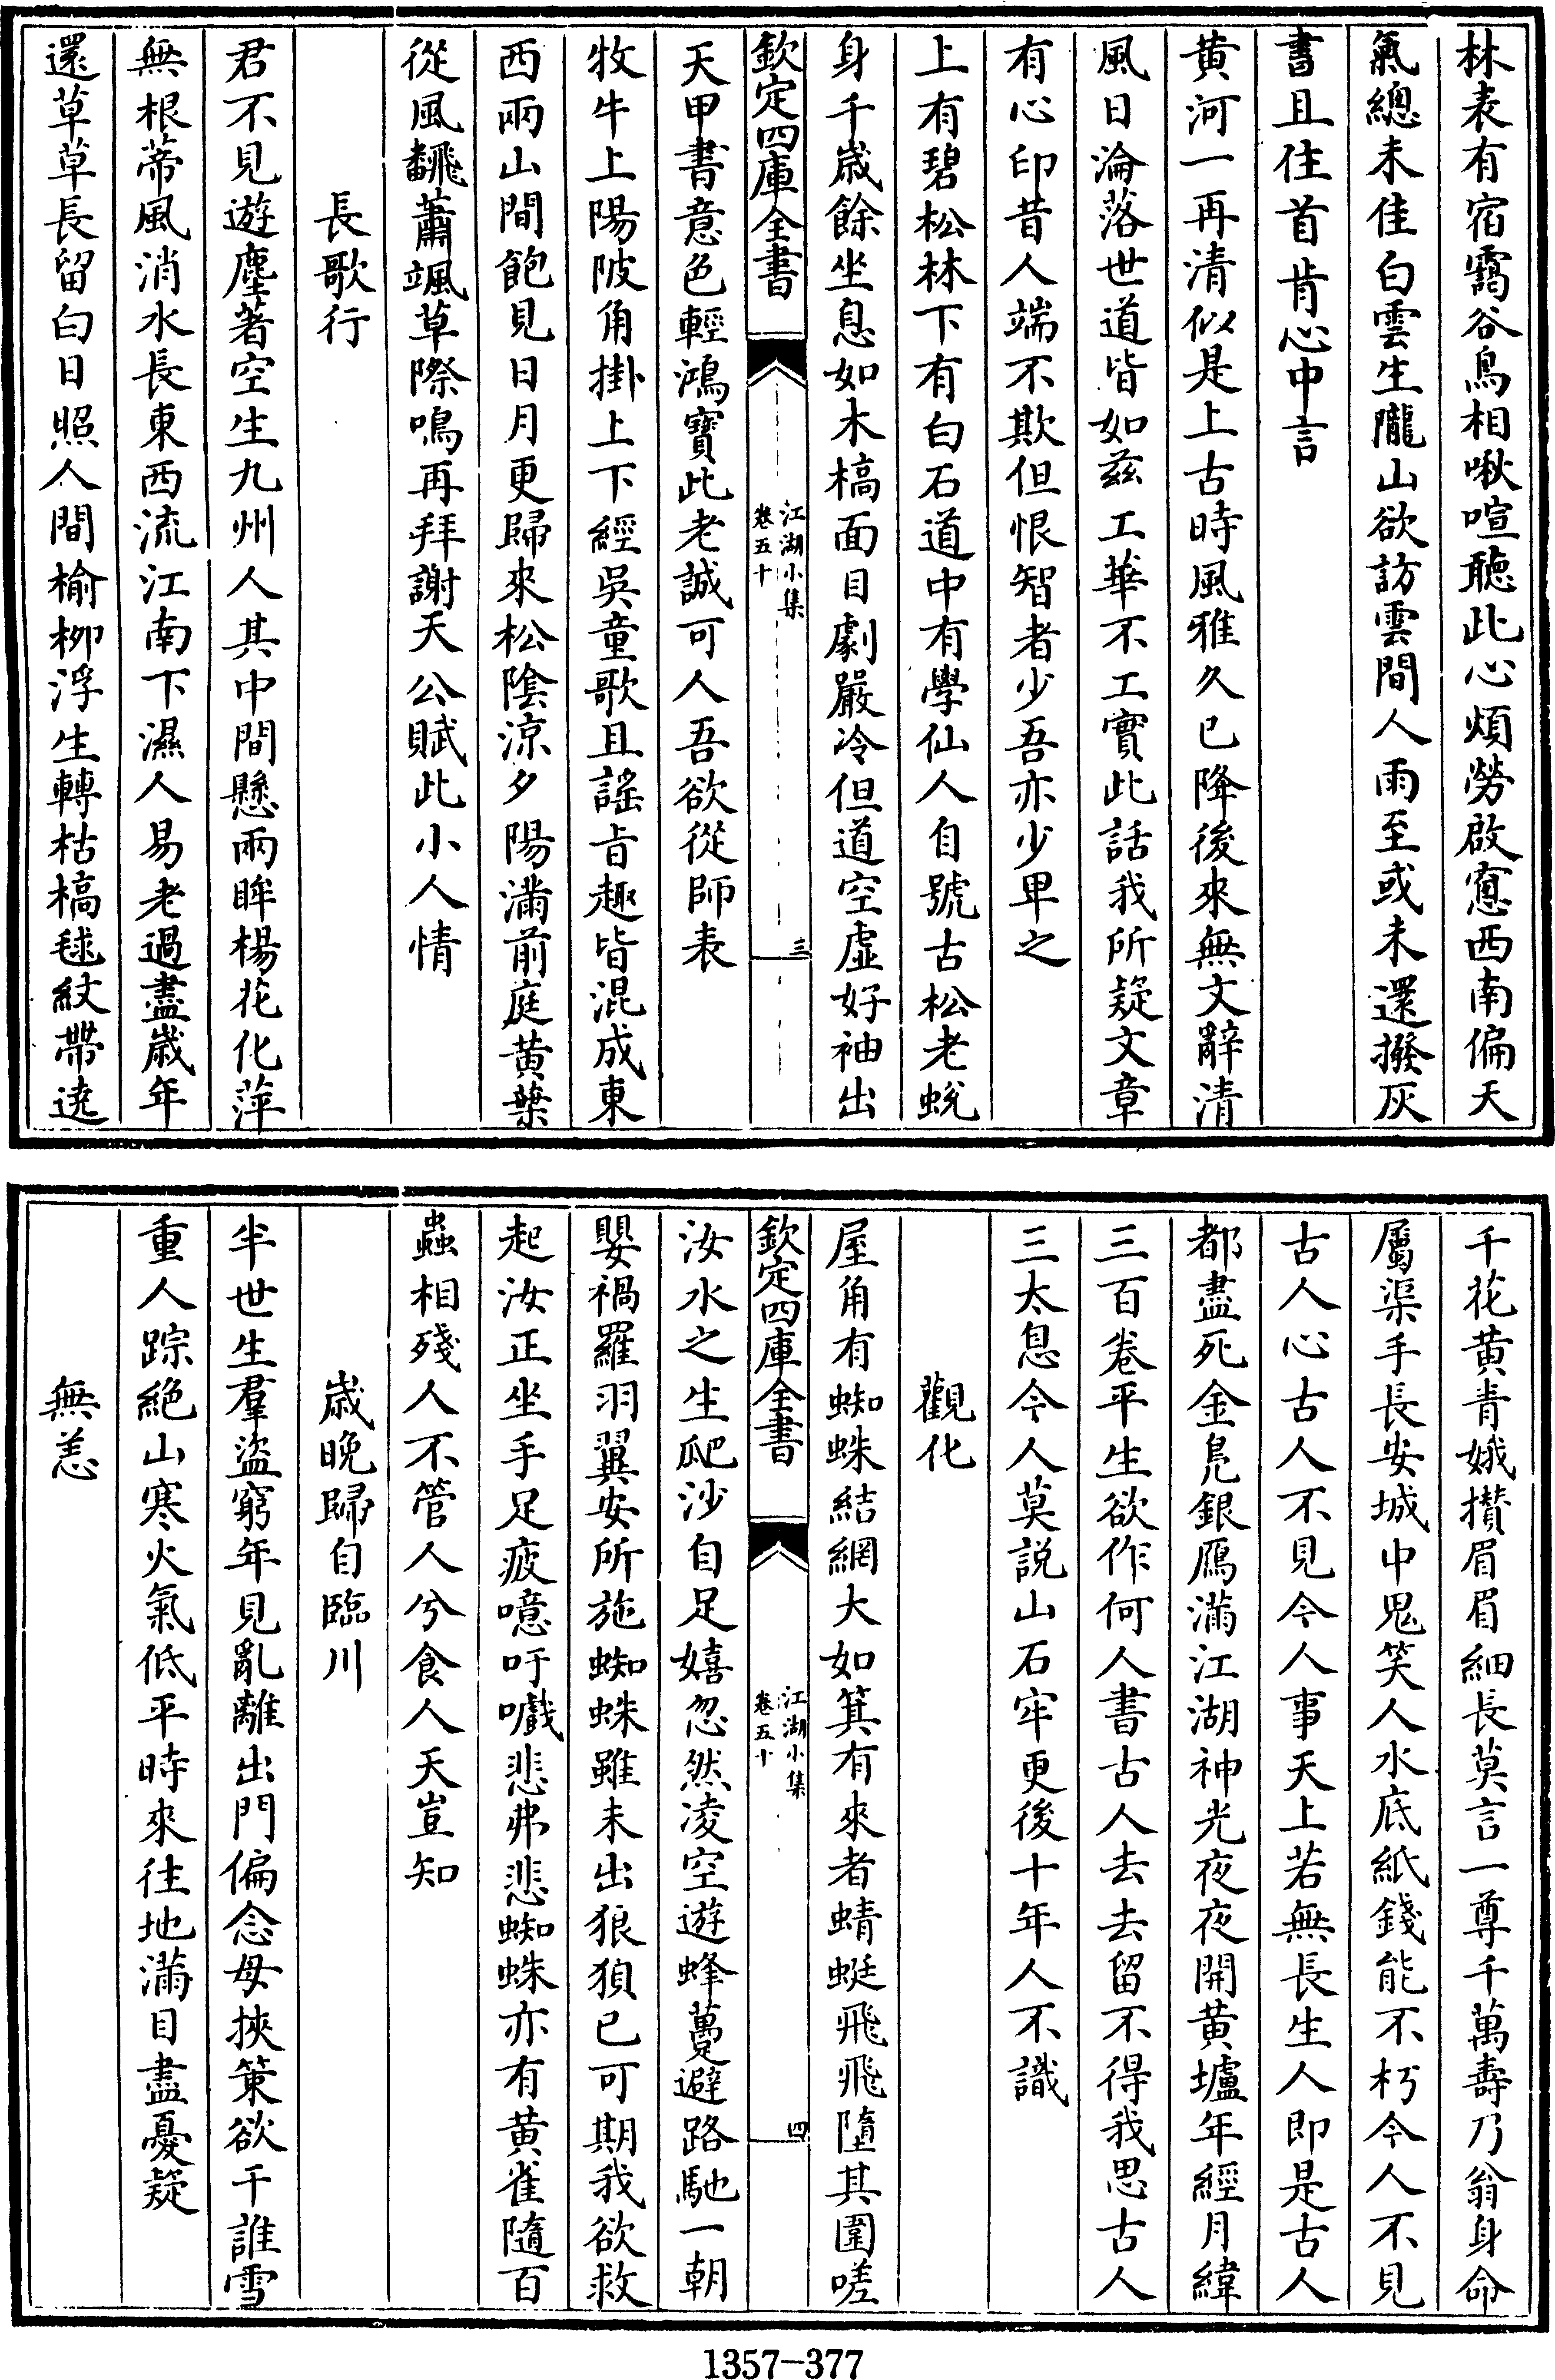 林表有宿靄谷鳥相啾喧聽此心煩勞啟窻西南偏天
氣總未佳白雲生隴山欲訪雲間人雨至或未還撥灰
書且住首肯心中言
黄河一再清似是上古時風雅久已降後來無文辭清
風日淪落世道皆如兹工華不工實此話我所疑文章
有心印昔人端不欺但恨智者少吾亦少卑之
上有碧松林下有白石道中有學仙人自號古松老蛻
身千歳餘坐息如木槁面目劇嚴冷但道空虚好袖出
欽定四庫全書
江湖小集
卷五十
三
天甲書意色輕鴻寶此老誠可人吾欲從師表
牧牛上陽陂角掛上下經吳童歌且謡旨趣皆混成東
西兩山間飽見日月更歸來松陰涼夕陽滿前庭黄葉
從風飜蕭颯草際鳴再拜謝天公賦此小人情
長歌行
君不見遊塵著空生九州人其中間懸兩眸楊花化萍
無根蒂風消水長東西流江南下濕人易老過盡歳年
還草草長留白日照人間榆柳浮生轉枯槁毬紋帶遶
千花黄青娥攅眉眉細長莫言一尊千萬壽乃翁身命
屬渠手長安城中鬼笑人水底紙錢能不朽今人不見
古人心古人不見今人事天上若無長生人即是古人
都盡死金鳬銀鴈滿江湖神光夜夜開黄壚年經月緯
三百卷平生欲作何人書古人去去留不得我思古人
三太息今人莫説山石牢更後十年人不識
觀化
屋角有蜘蛛結網大如箕有來者蜻蜓飛飛墮其圍嗟
欽定四庫全書
江湖小集
卷五十
四
汝水之生爬沙自足嬉忽然凌空遊蜂蠆避路馳一朝
嬰禍羅羽翼安所施蜘蛛雖未出狼狽已可期我欲救
起汝正坐手足疲噫吁嚱悲弗悲蜘蛛亦有黄雀隨百
蟲相殘人不管人兮食人天豈知
歳晚歸自臨川
半世生羣盜窮年見亂離出門偏念母挾策欲干誰雪
重人踪絶山寒火氣低平時來往地滿目盡憂疑
無恙
1357-377